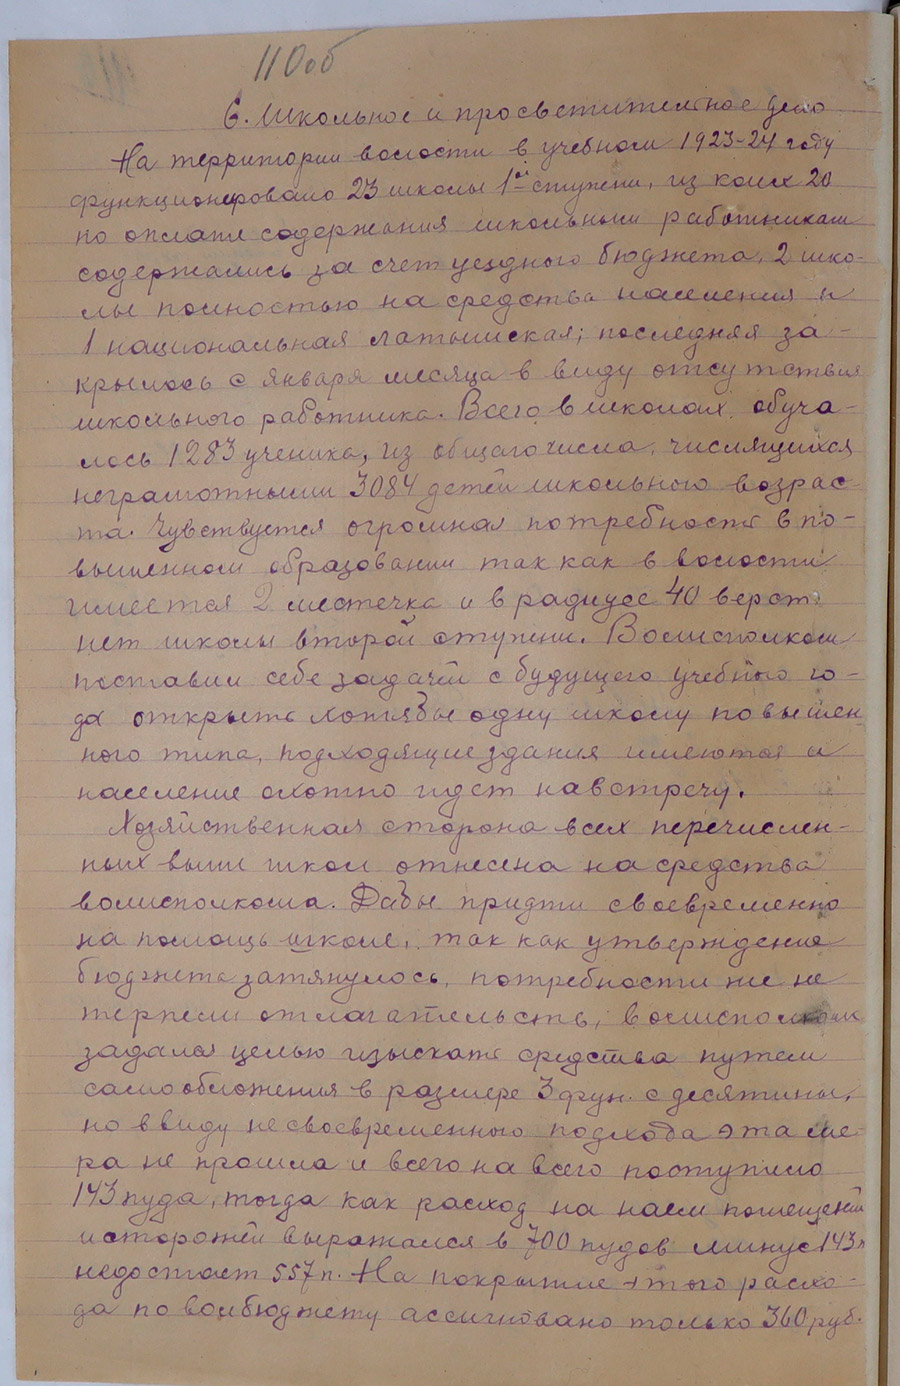 110об
6. Школьное и просветительное дело
На территории волости в учебном 1923-24 году
функционировало 23 школы 1ой ступени, из коих 20
по оплате содержания школьным работникам
содержались за счет уездного бюджета, 2 шко-
лы полностью на средства населения и
1 национальная латышская; последняя за-
крылось с января месяца в виду отсутствия
школьного работника. Всего в школах обуча-
лось 1283 ученика, из общаго числа, числящихся
неграмотными 3084 детей школьного возрас
та. Чувствуется огромная потребность в по-
вышенном образовании так как в волости
имеется 2 местечка и в радиусе 40 верст
нет школы второй ступени. Волисполком
поставил себе задачей с будущего учебного го-
да открыть хотябы одну школу повышен-
ного типа, подходящие здания имеются и
население охотно идет навстречу.
Хозяйственная сторона всех перечислен-
ных выше школ отнесена на средства
волисполкома. Дабы придти своевременно
на помощь школе, так как утверждение
бюджета затянулось, потребности же не
терпели отлагательств, волисполком
задался целью изыскать средства путем
самообложения в размере 3 фун. с десятины,
но ввиду несвоевременного подхода эта ме-
ра не прошла и всего на всего поступило
143 пуда, тогда как расход на наем помещений
и сторожей выражался в 700 пудов минус 143 п
недостает 557 п. На покрытие этого расхо-
да по волбюджету ассигновано только 360 руб.